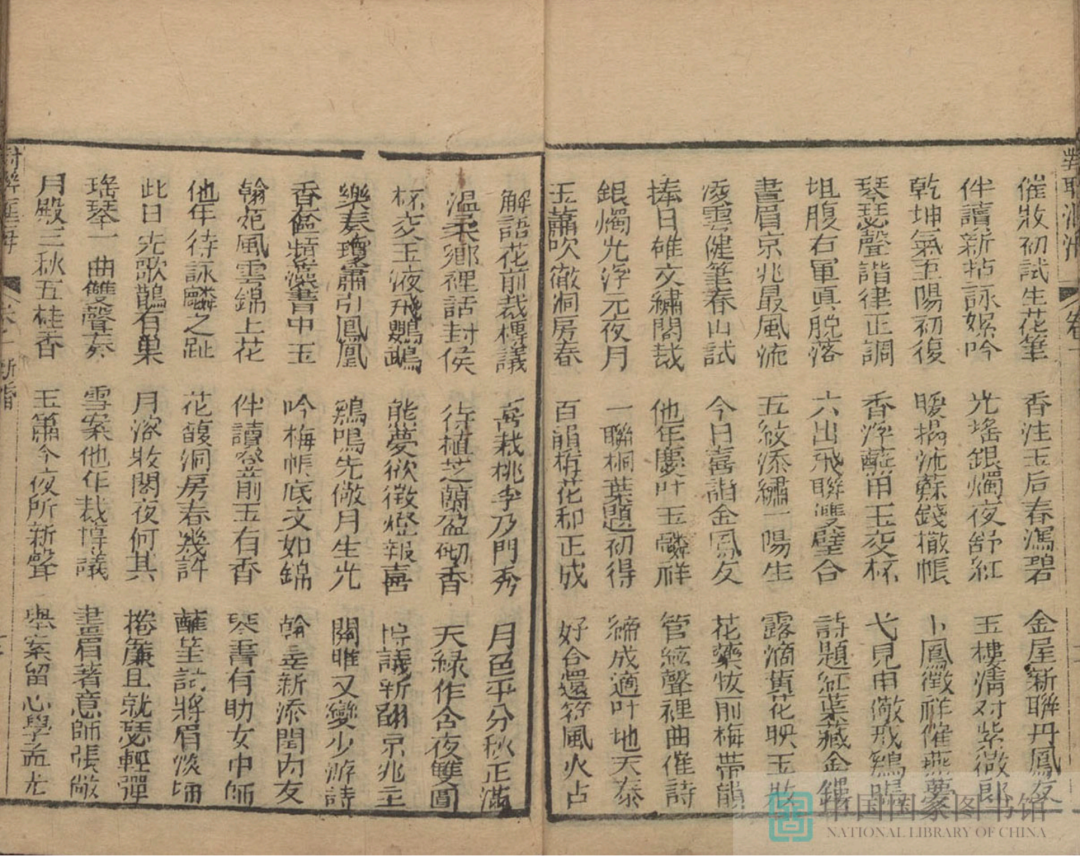 對聯滙海 卷十
催妝初試生花筆 香注玉后春瀉碧 金屋新聯丹鳳友
伴讀新拈詠絮吟 光搖銀燭夜舒紅 玉樓淸对紫微郎
乾坤氣王陽初復 暖揚流蘇錢撒帳 卜鳳徵祥催燕夢
琴瑟聲諧律正調 香浮蘸甲玉交杯 弋見申儆戒鷄鳴
坦腹右軍真脫落 六出飛聯雙璧合 詩題紅葉藏金縷
畫眉京兆最風流 五紋添繡一陽生 露滴黃花映玉妝
凌雲健筆春山試 今日喜諧金鳳友 花藥恢前梅帶韻
捧日雄文繡閣哉 他年慶叶玉麟祥 管絃聲裡曲催詩
銀燭光浮元夜月 一聯桐葉題初得 締成適叶地天泰
玉蕭吹徹洞房春 百韻梅花和正成 好合還符風火占
解語花前裁槫議 高栽桃李乃門秀 月色平分秋正滿
溫柔鄉裡話封侯 待植芝蘭盈砌香 天緣作合夜雙圓
杯交玉液飛鸚鵡 熊夢欲徵燈報喜 博議新翻京兆主
樂奏瓊蕭引鳳凰 鷄鳴先儆月生光 關雎又變少游詩
香奩精藻書中玉 吟梅帳底文如錦 翰苑新添閨內友
翰苑風雲錦上花 伴讀登前玉有香 琴書有助女中師
他年待詠麟之趾 花馥洞房春幾許 蘸筆記將眉淡埽
此日先歌鵲有巢 月溶妝閣夜何其 捲簾且就瑟輕彈
瑤琴一曲雙聲奏 雪案他年裁博議 畫眉著意師張敞
月殿三秋五桂香 玉簫今夜听新聲 舉案留心學孟光
對聯滙海 卷十 新婚
中国国家图书馆
NATIONAL LIBRARY OF CHINA